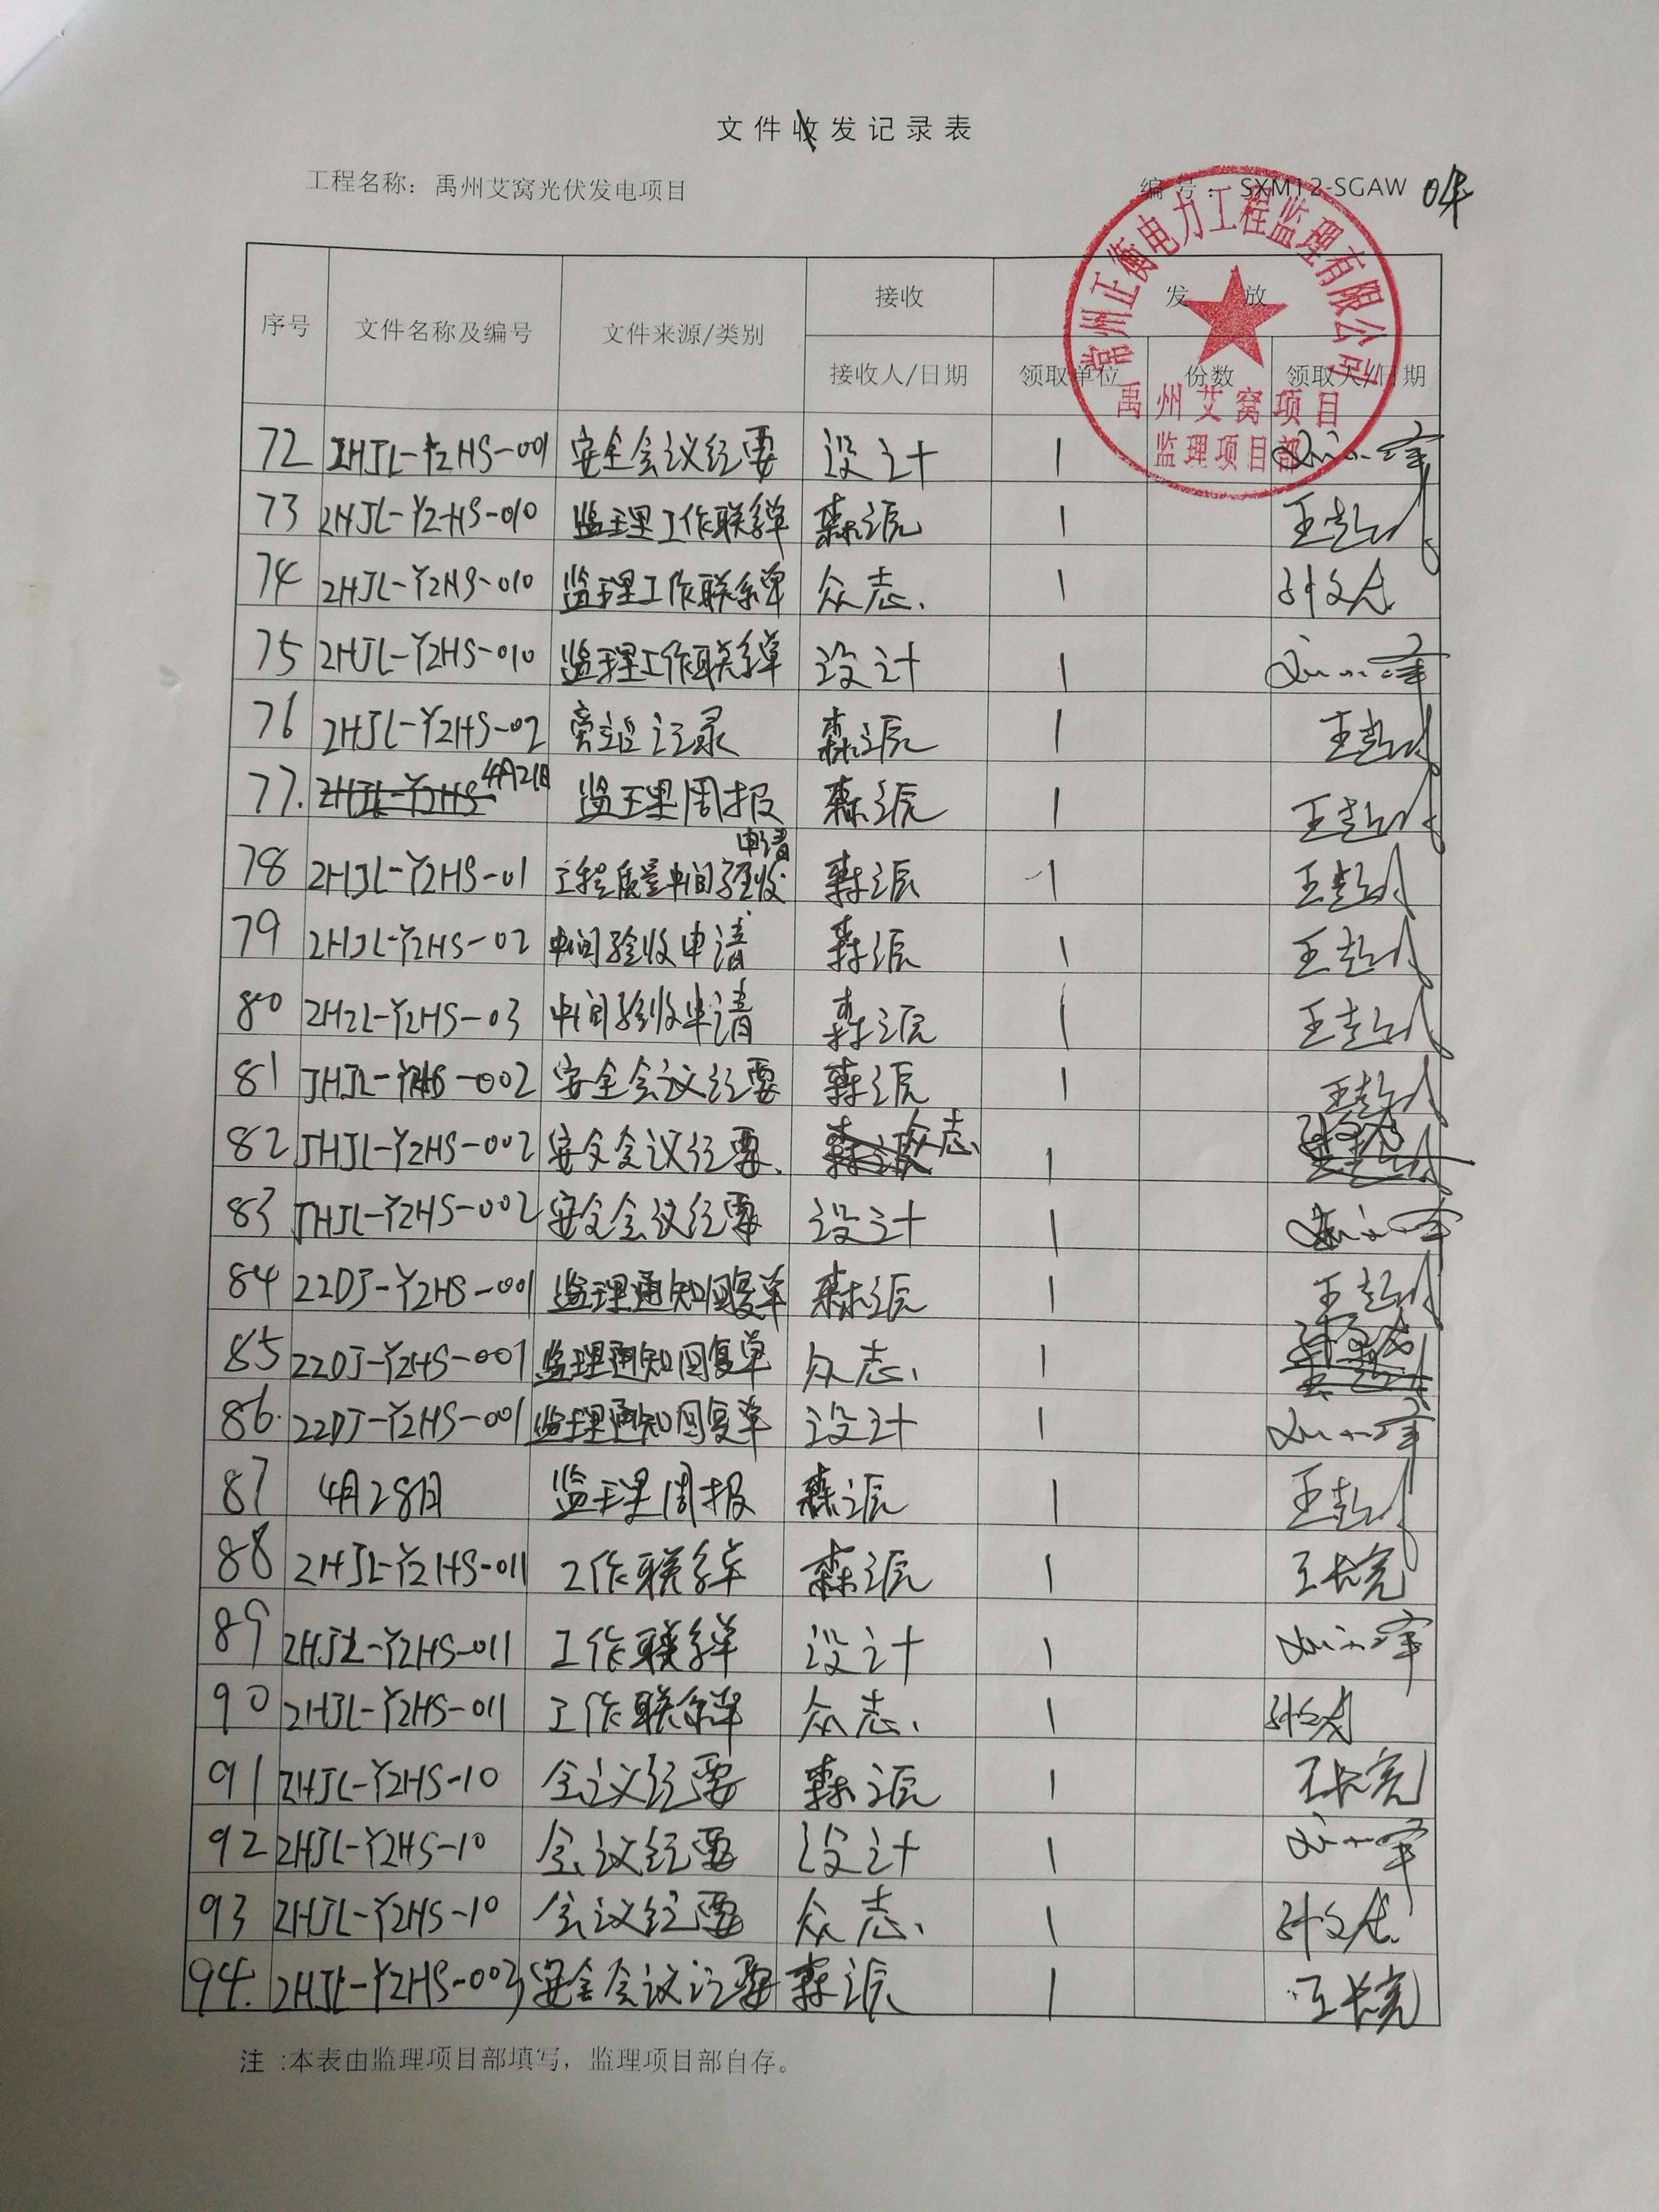 文件收发记录表
工程名称：禹州艾窝光伏发电项目 编号：SXM12-SGAW 04
常州正衡电力工程监理有限公司
禹州艾窝项目
监理项目部
序号 文件名称及编号 文件来源/类别 接收 发放
接收人/日期 领取单位 份数 领取人/日期
72 ZHJL-YZHS-001 安全会议纪要 设计 1
73 ZHJL-YZHS-010 监理工作联系单 森源 1
74 ZHJL-YZHS-010 监理工作联系单 众志、 1
75 ZHJL-YZHS-010 监理工作联系单 设计 1
76 ZHJL-YZHS-02 旁站记录 森源 1
77. 4月21日 监理周报 森源 1
78 ZHJL-YZHS-01 工程质量中间验收申请 森源 1
79 ZHJL-YZHS-02 中间验收申请 森源 1
80 ZHZL-YZHS-03 中间验收申请 森源 1
81 JHJL-YZHS-002 安全会议纪要 森源 1
82 JHJL-YZHS-002 安全会议纪要、 众志、 1
83 JHJL-YZHS-002 安全会议纪要 设计 1
84 ZZDJ-YZHS-001 监理通知回复单 森源 1
85 ZZDJ-YZHS-001 监理通知回复单 众志、 1
86. ZZDJ-YZHS-001 监理通知回复单 设计 1
87 4月28日 监理周报 森源 1
88 ZHJL-YZHS-011 工作联系单 森源 1 王长亮
89 ZHJL-YZHS-011 工作联系单 设计 1
90 ZHJL-YZHS-011 工作联系单 众志、 1
91 ZHJL-YZHS-10 会议纪要 森源 1 王长亮
92 ZHJL-YZHS-10 会议纪要 设计 1
93 ZHJL-YZHS-10 会议纪要 众志、 1
94. ZHJL-YZHS-003 安全会议纪要 森源 1 王长亮
注：本表由监理项目部填写，监理项目部自存。